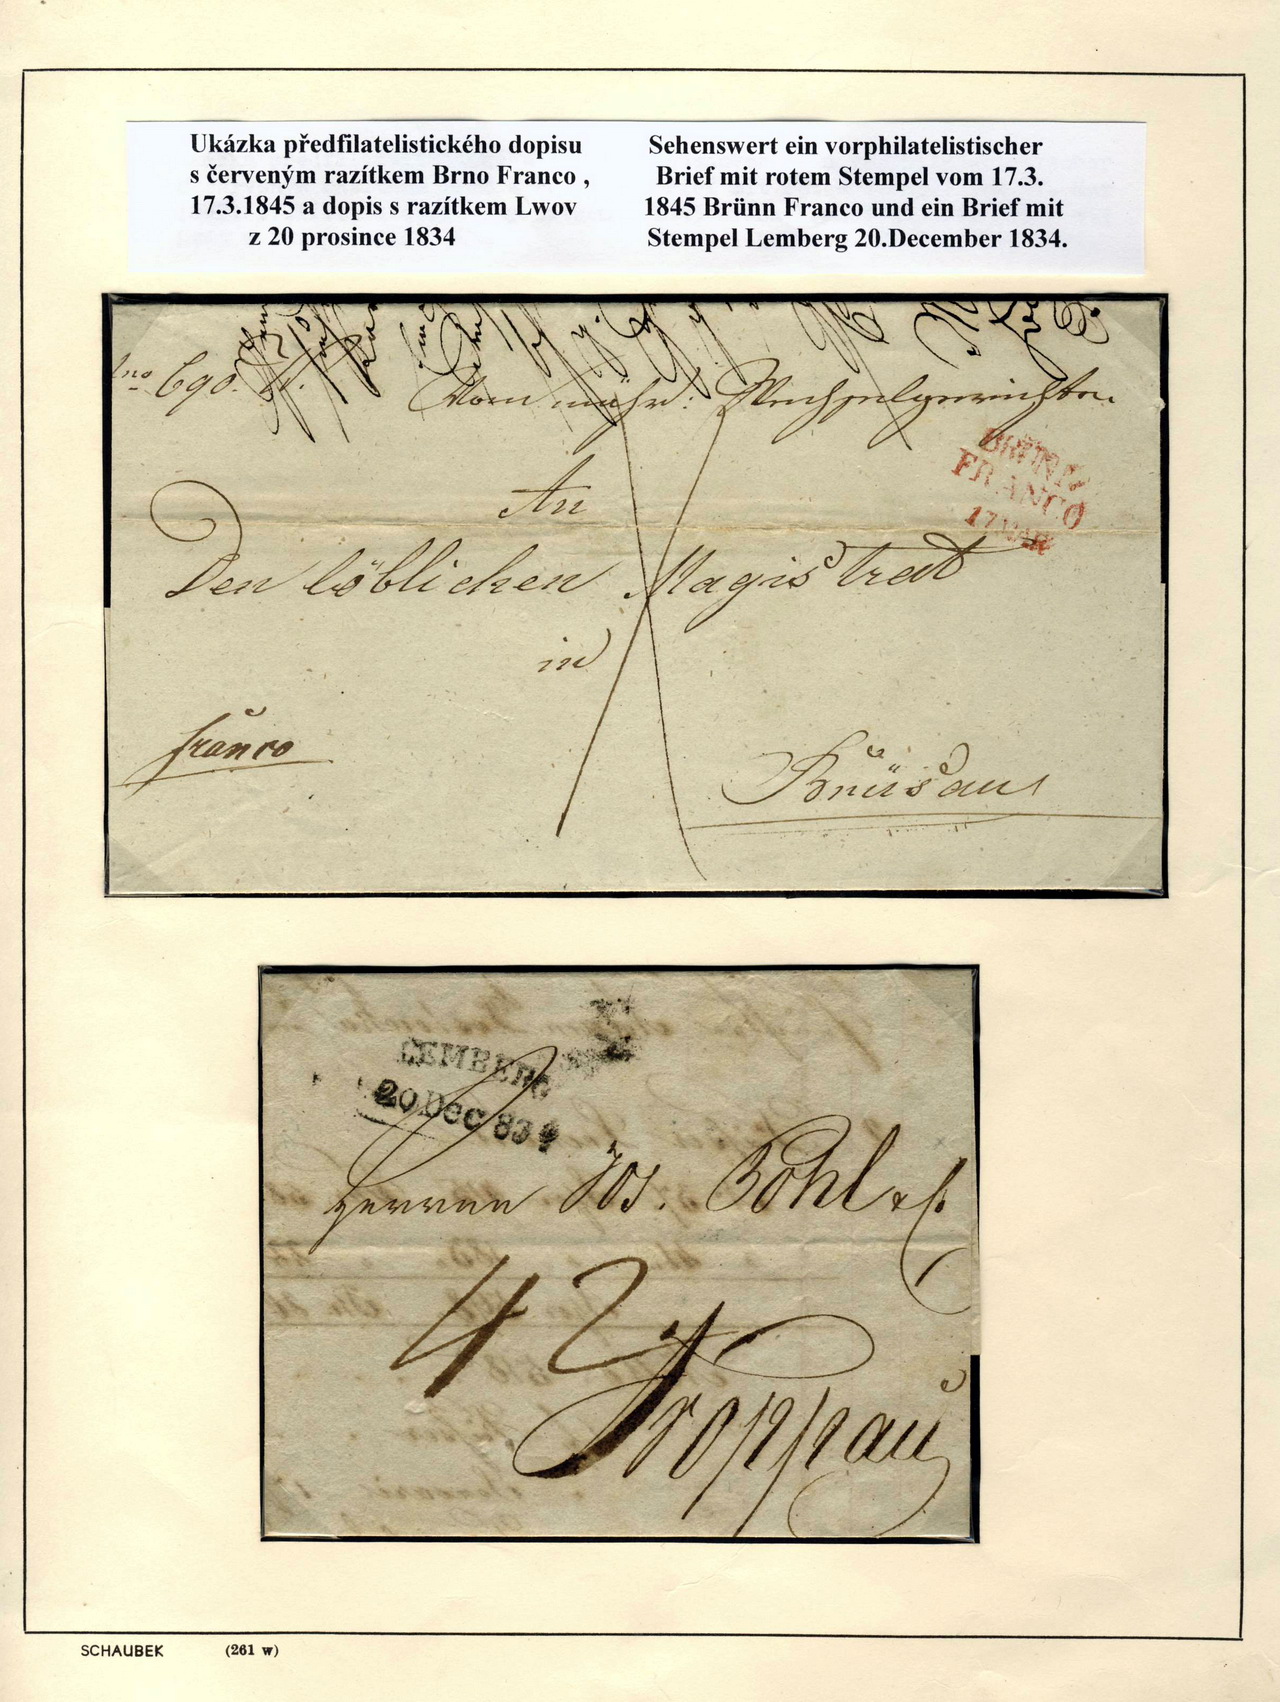 Ukázka předfilatelistického dopisu
s červeným razítkem Brno Franco ,
17.3.1845 a dopis s razítkem Lwov
z 20 prosince 1834
Sehenswert ein vorphilatelistischer
Brief mit rotem Stempel vom 17.3.
1845 Brünn Franco und ein Brief mit
Stempel Lemberg 20.December 1834.
Vom mähr: Wechselgerichte
BRÜNN
FRANCO
17. MAR
An
Den löblichen Magistrat
in
franco
Brüsau
LEMBERG
20 Dec 834
Herren Jos. Bohl &
42
Troppau
SCHAUBEK (261 w)